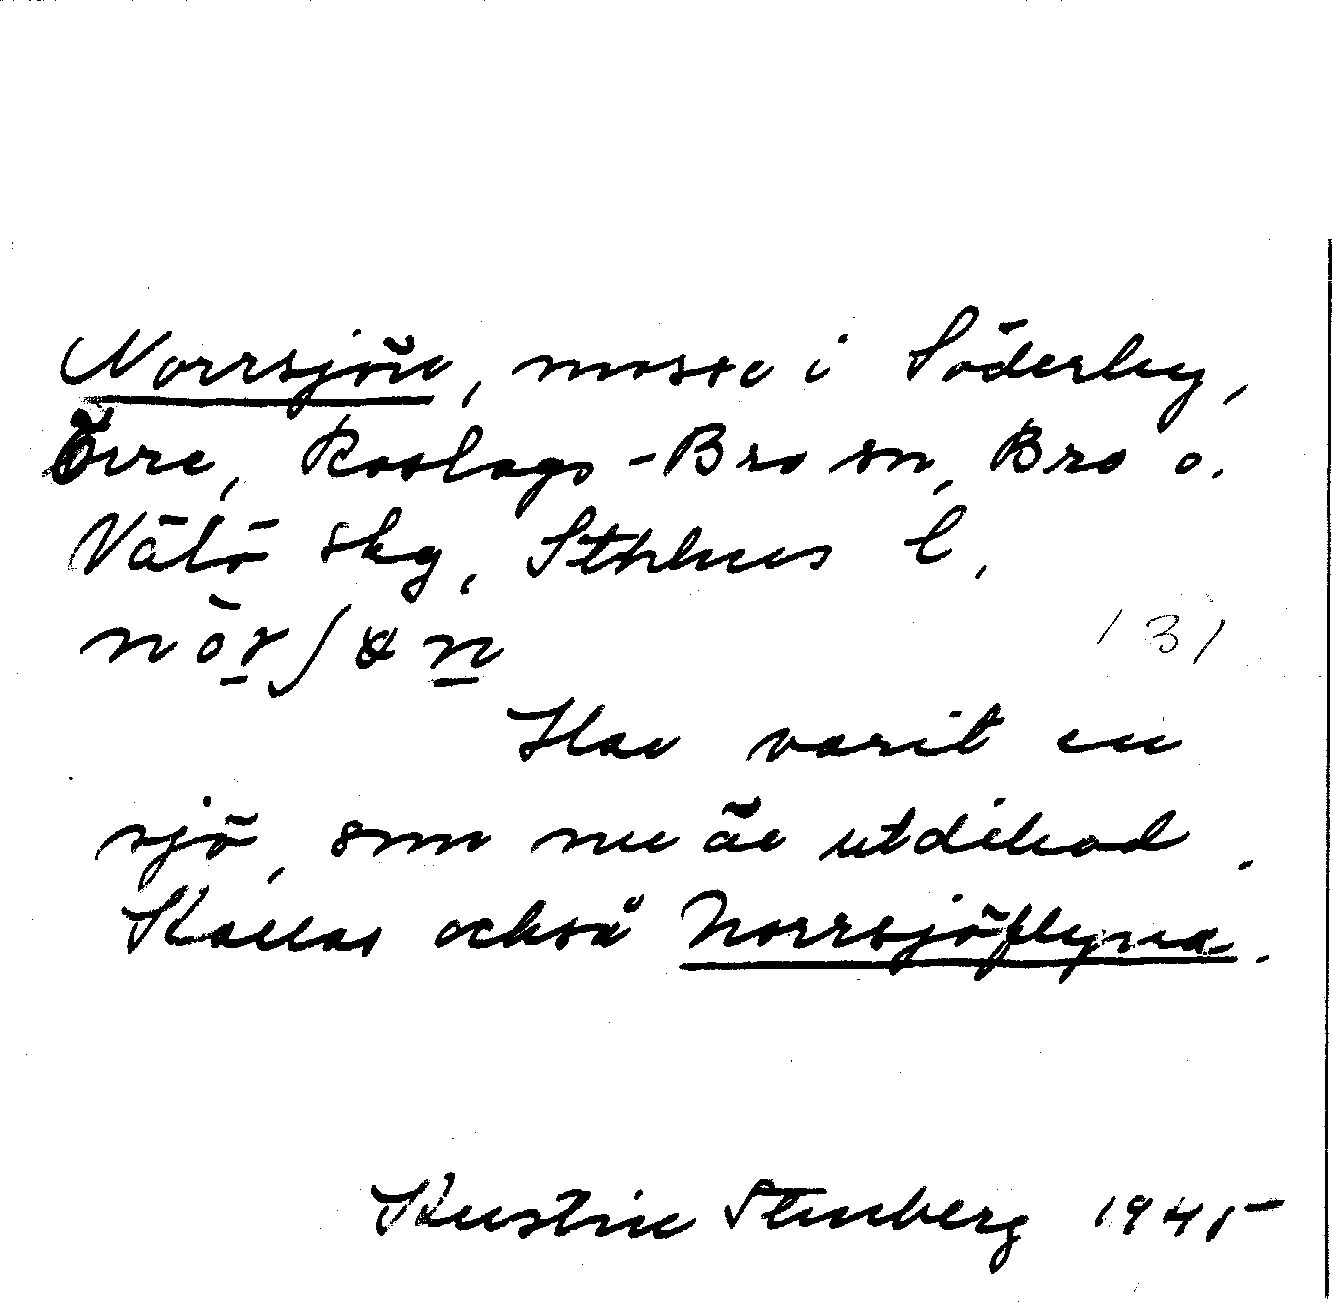 Norrsjön, mosse i Söderby,
Övre, Roslags-Bro sn, Bro o.
Vätö skg, Sthlms l.
131
Har varit en
sjö, som nu är utdikad.
Kallas också Norrsjöflyna.
Kerstin Stenberg 1945